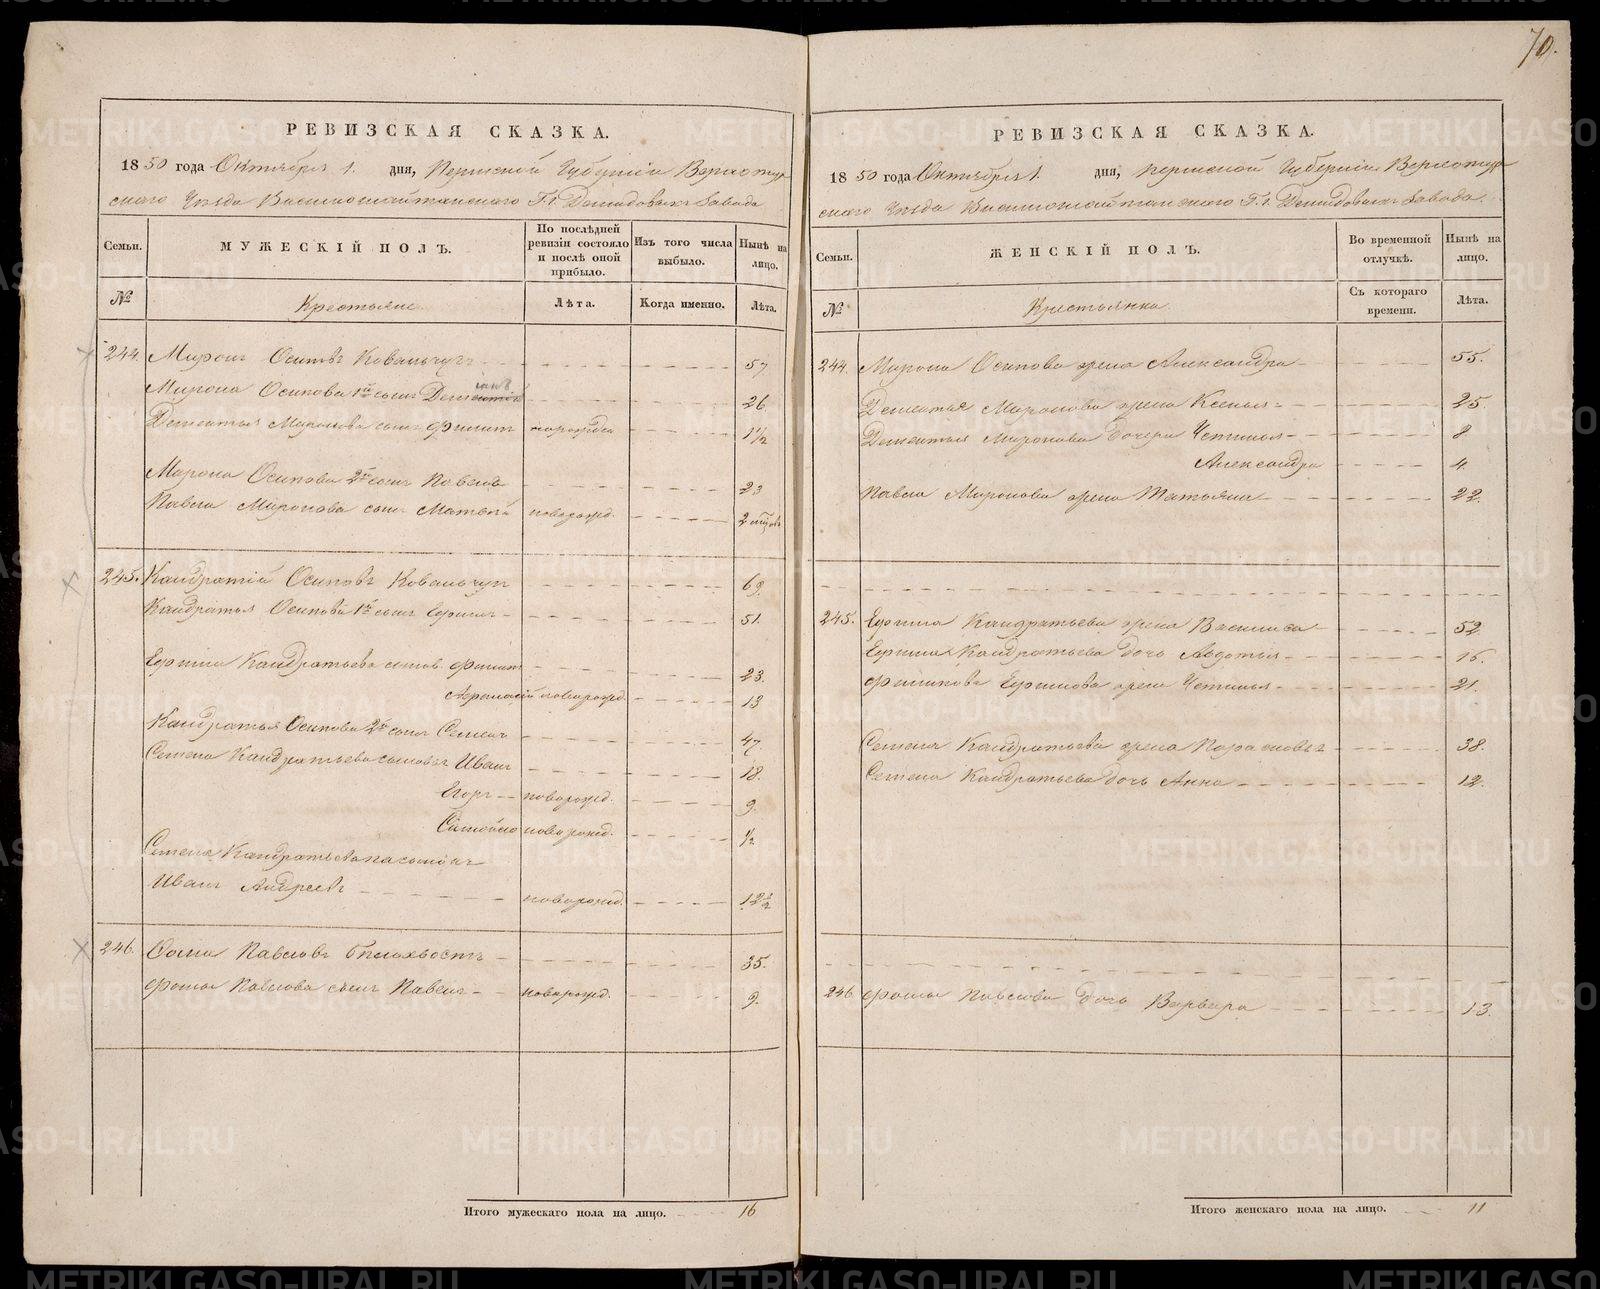 70.
РЕВИЗСКАЯ СКАЗКА.
1850 года Октября 1. дня, Пермской Губерніи Верхотур
скаго Уѣзда Висимошайтанскаго Г.г. Демидовыхъ Завода
Семьи.
МУЖЕСКІЙ ПОЛЪ.
По послѣдней ревизіи состояло и послѣ оной прибыло.
Изъ того числа выбыло.
Нынѣ на лицо.
№
Крестьяне
Лѣта.
Когда именно.
Лѣта.
244. Миронъ Осиповъ Ковальчукъ 57
Мирона Осипова 1й сынъ Дементій 26
Дементья Миронова сынъ Филипъ новорожд 1½
Мирона Осипова 2й сынъ Павелъ 23
Павла Миронова сынъ Матвѣй новорожд. 2 мѣсяцовъ
245. Кандратій Осиповъ Ковальчукъ 69
Кандратья Осипова 1й сынъ Ефимъ 51.
Ефима Кандратьева сынов. Филипъ 23.
Афонасій новорожд. 13
Кандратья Осипова 2й сынъ Семенъ 47
Семена Кандратьева сыновья Иванъ 18.
Егоръ новорожд. 9
Самойло новорожд. ½
Семена Кандратьева пасынокъ
Иванъ Андреевъ новорожд. 12½
246. Фома Павловъ Бѣлохвостъ 35.
Фомы Павлова сынъ Павелъ новорожд. 9.
Итого мужескаго пола на лицо. 16
РЕВИЗСКАЯ СКАЗКА.
1850 года Октября 1. дня, Пермской Губерніи Верхотур
скаго Уѣзда Висимошайтанскаго Г.г. Демидовыхъ Завода.
Семьи.
ЖЕНСКІЙ ПОЛЪ.
Во временной отлучкѣ.
Нынѣ на лицо.
№
Крестьянки
Съ котораго времени.
Лѣта.
244. Мирона Осипова жена Александра 55.
Дементья Миронова жена Ксенья 25.
Дементья Миронова дочери Устинья 8
Александра 4.
Павла Миронова жена Татьяна 22.
245. Ефима Кандратьева жена Василиса 52
Ефима Кандратьева дочь Авдотья 16.
Филипова Ефимова жена Устинья 21.
Семена Кандратьева жена Парасковья 38.
Семена Кандратьева дочь Анна 12.
246. Фомы Павлова дочь Варвара 13.
Итого женскаго пола на лицо. 11
METRIKI.GASO-URAL.RU